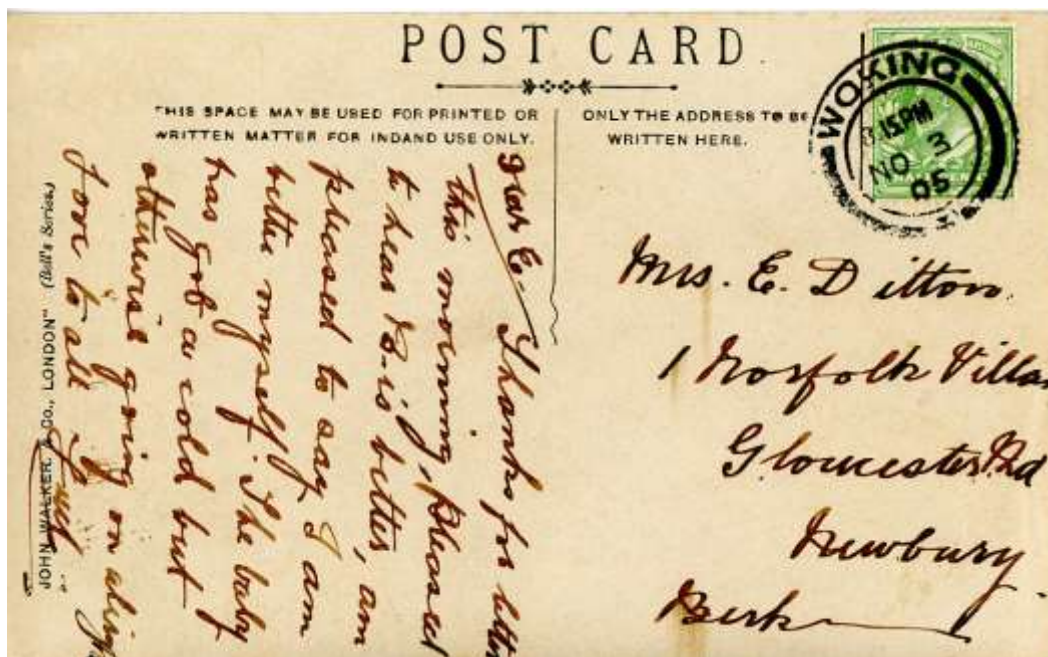 POST CARD
THIS SPACE MAY BE USED FOR PRINTED OR
WRITTEN MATTER FOR INDAND USE ONLY.
ONLY THE ADDRESS TO BE
WRITTEN HERE.
WOKING
15PM
NO 3
05
Dear E. Thanks for letter
this morning, pleased
to hear B. is better, am
pleased to say I am
better myself. The baby
has got a cold but
otherwise going on alright
Love to all
Mrs. E. Ditton.
1 Norfolk Villas
Gloucester Rd
Newbury
Berk
JOHN WALKER & Co., LONDON" (Bell's Series)